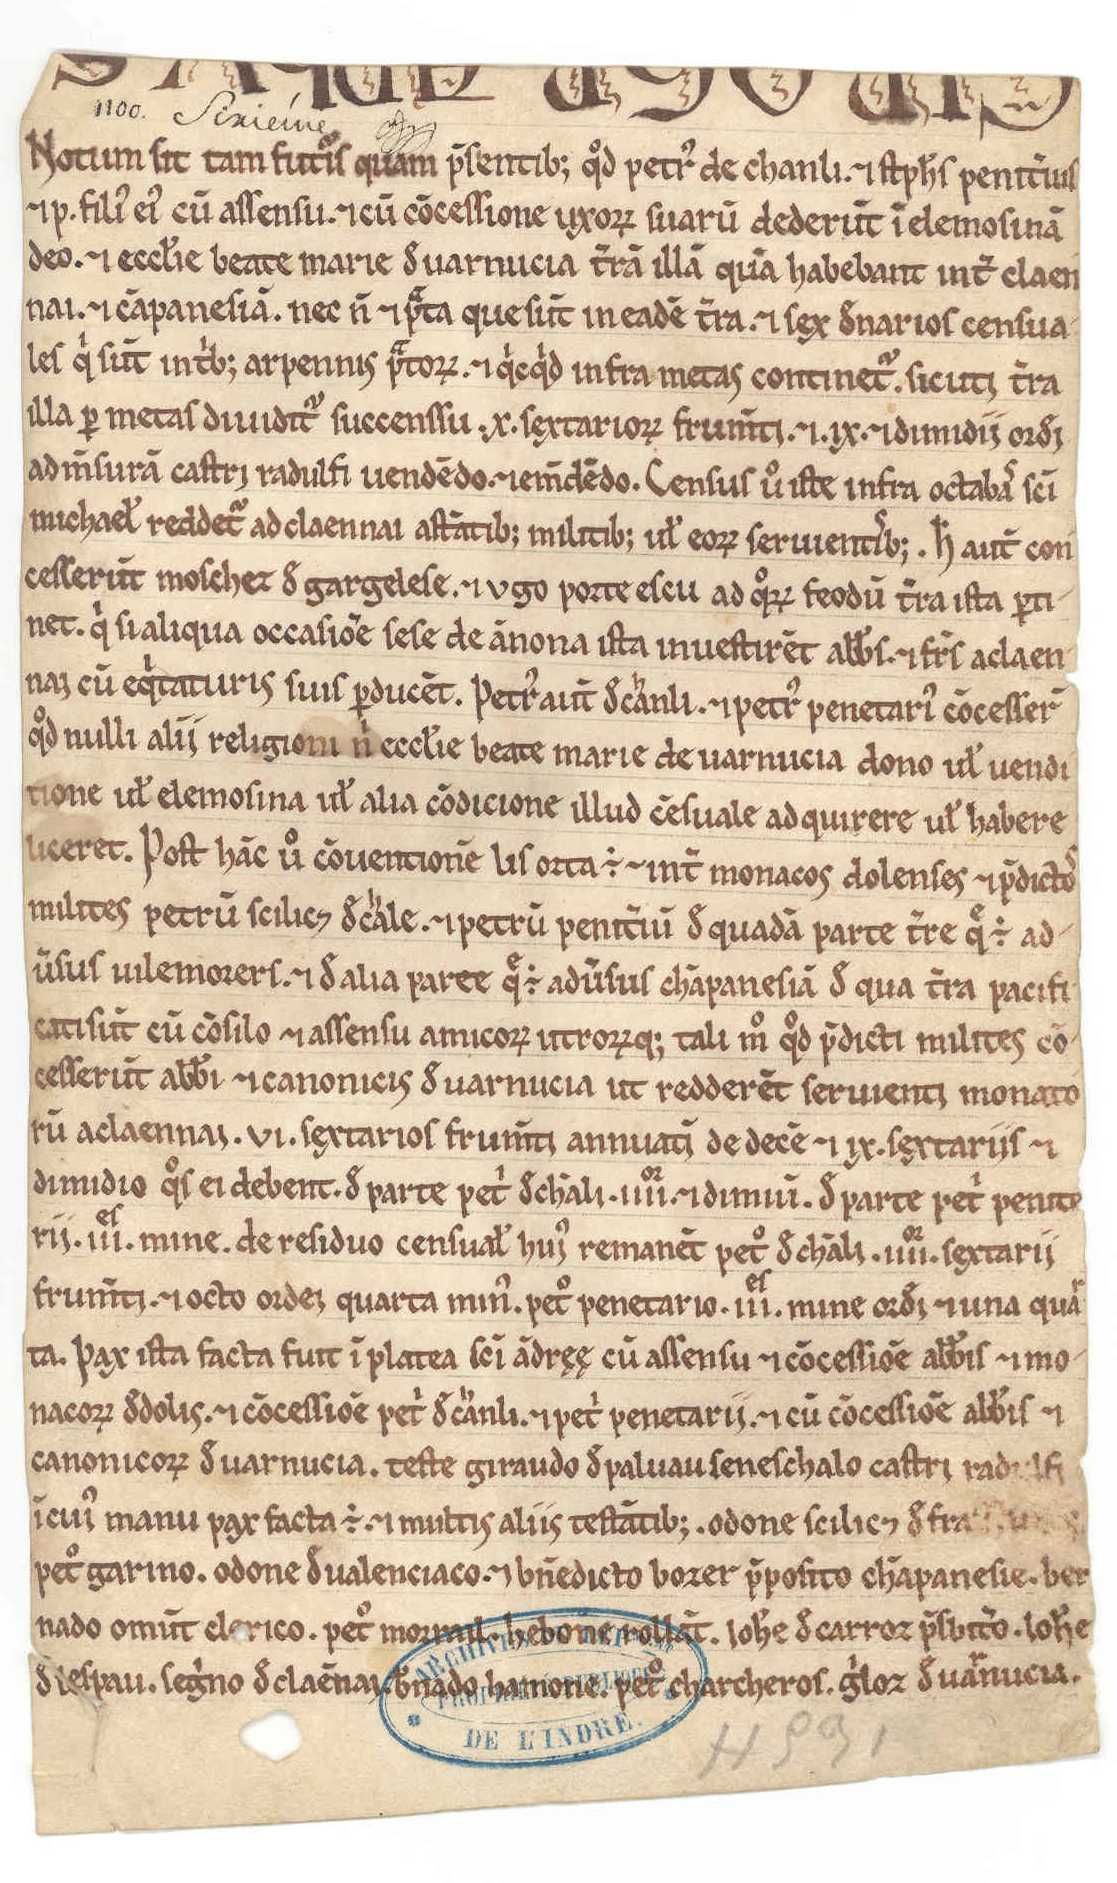 1100.
Notum sit tam futur̄is quam p̄sentib; qd̊ petr᾽ de chanli. ⁊ stph̄s penit̄ius
⁊ p. fili᾽ ei᾽ cū assensu. ⁊ cū cōcessione uxoꝝ suarū dederūt ī elemosinā
deo. ⁊ eccl̄ie beate marie đ uarnucia t̄rā illā quā habebant int̄ claen
nai. ⁊ cāpanesiā. nec ñ ⁊ pᵃta que sūt in eadē t̄ra. ⁊ sex đnarios censua-
les qⁱ sūt intⁱb; arpennis pᵃtoꝝ. ⁊ qⁱcqⁱd infra metas continet᷑. sicuti t̄ra
illa ꝑ metas diuidit᷑ succenssu .x. sextarioꝝ frum̄ti. ⁊ .ix. ⁊ dimidij orđi
ad m̄surā castri radulfi uendēdo. ⁊ em̄dēdo. Census ů iste infra octabas sc̄i
michael̄ reddet᷑ ad claennai astātib; militib; ul̄ eoꝝ seruientib; . h̄ aut̄ con
cesserūt moschet đ gargelese. ⁊ vgo porte escu ad qᵒꝝ feodū t̄ra ista ꝑti-
net. qⁱ si aliqua occasiōe sese de ānona ista inuestirēt abb̄s. ⁊ fr̄s aclaen-
nai cū eqⁱtaturis suis ꝑducēt. Petr᾽ aut̄ đ cħanli. ⁊ petr᾽ penetari᾽ cōcesser̄
qd̊ nulli alij religioni nⁱ eccl̄ie beate marie de uarnucia dono ul̄ uendi
tione ul̄ elemosina ul̄ alia cōdicione illud cēsuale adquirere ul̄ habere
liceret. Post hāc ů cōuentionē lis orta ÷ int̄ monacos dolenses ⁊ p̄dictos
milites petrū scilicꝫ đ cħale. ⁊ petrū penit̄iū đ quadā parte t̄re q̄ ÷ ad-
ūsus uilemorers. ⁊ đ alia parte q̄ ÷ adūsus chāpanesiā đ qua t̄ra pacifi
cati sūt cū cōsilo ⁊ assensu amicoꝝ utroꝝq; tali m̊ qd̊ p̄dicti milites cō-
cesserūt abb̄i ⁊ canonicis đ uarnucia ut redderēt seruienti monaco
rū aclaennai .vi. sextarios frum̄ti annuati de decē ⁊ ix. sextarijs ⁊
dimidio qᵒs ei debent. đ parte petⁱ đ chāli .iiiiᵒʳ. ⁊ dimiū. đ parte petⁱ penite
rij .iiiᵉˢ. mine. de residuo censual̄ hui᾽ remanēt petᵒ đ chāli .iiiiᵒʳ. sextarii
frum̄ti. ⁊ octo ordei quarta min᾽. petᵒ penetario .iiiᵉˢ. mine orđi ⁊ una quar
ta. Pax ista facta fuit ī platea sc̄i ādręę cū assensu ⁊ cōcessiōe abb̄is ⁊ mo-
nacoꝝ đ dolis. ⁊ cōcessiōe petⁱ đ cħanli. ⁊ petⁱ penetarij. ⁊ cū cōcessiōe abb̄is ⁊
canonicoꝝ đ uarnucia. teste giraudo đ paluau seneschalo castri radulfi
ī cui᾽ manu pax facta ÷. ⁊ multis aliis testātib;. odone scilicꝫ đ fra
petᵒ garino. odone đ ualenciaco. ⁊ bn̄edicto bozer p̄posito chāpanesie. ber
nado omūt clerico. petᵒ hebone rollāt. Ioh̄e đ carroz p̄sbit̄o. Ioh̄e
đ lespau. segⁱno đ claēnai. b̄nado hamone. petᵒ charcheros. gⁱloz đ uarnucia.
ARCHIVES
DE L'INDRE.
H 591